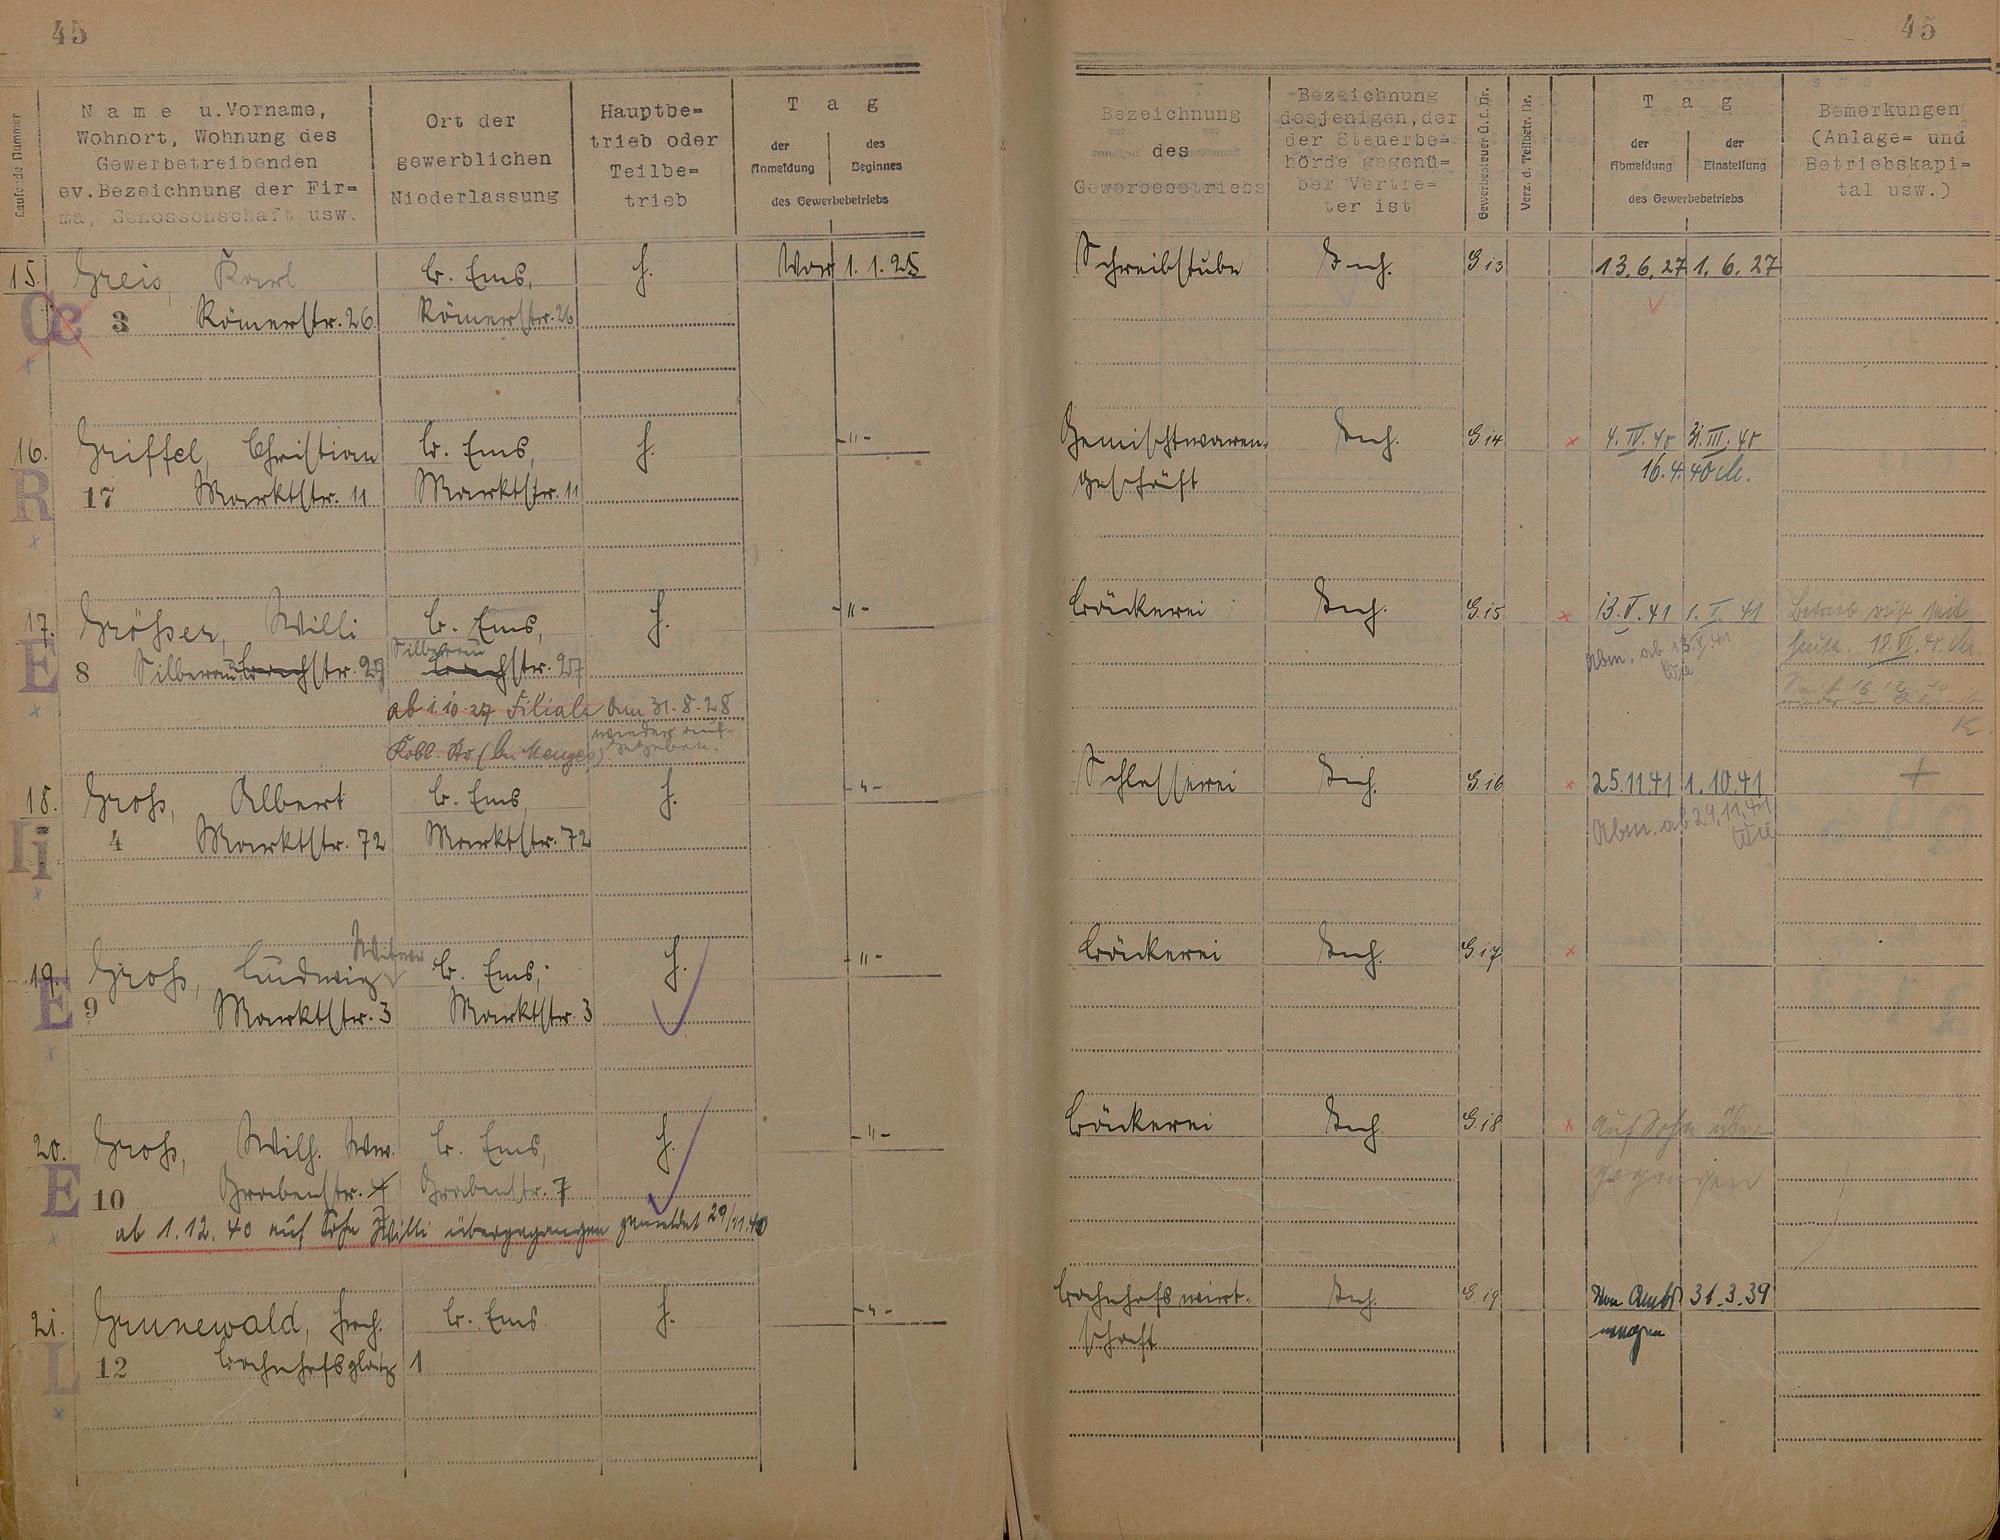 45
45
Laufende Nummer
Name u. Vorname,
Wohnort, Wohnung des
Gewerbetreibenden
ev. Bezeichnung der Fir=
ma, Genossenschaft usw.
Ort der
gewerblichen
Niederlassung
Hauptbe=
trieb oder
Teilbe=
trieb
Tag
der Anmeldung
des Beginnes
des Gewerbebetriebs
Bezeichnung
des
Gewerbebetriebs
Bezeichnung
desjenigen, der
der Steuerbe=
hörde gegenü=
ber Vertre=
ter ist
Gewerbesteuer Ü.L.Nr.
Verz. d. Teilbetr. Nr.
Tag
der Abmeldung
der Einstellung
des Gewerbebetriebs
Bemerkungen
(Anlage= und
Betriebskapi=
tal usw.)
15. Greis, Karl B. Ems, H. Vor 1.1.25 Schreibstube Inh. G.13 13.6.27 1.6.27
Ce 3 Römerstr. 26 Römerstr. 26
16. Griffel, Christian B. Ems, H. -"- Gemischtwaren- Inh. G.14 x 4.IV.40 31.III.40
R 17 Marktstr. 11 Marktstr. 11 geschäft 16.4.40
17. Größer, Willi B. Ems, H. -"- Bäckerei Inh. G.15 x 13.V.41 1.V.41
E 8 Silberau Bachstr. 27 Silberau Bachstr. 27 Abm. ab 13.V.41
ab 1.10.27 Filiale am 31.8.28
Kobl. Str (bei Menges) wieder auf-
gegeben.
18. Groß, Albert B. Ems, H. -"- Schlosserei Inh. G.16 x 25.11.41 1.10.41 +
Ii 4 Marktstr. 72 Marktstr. 72 Abm. ab 29.11.41
19. Groß, Ludwig Witwe B. Ems, H. -"- Bäckerei Inh. G.17 x
E 9 Marktstr. 3 Marktstr. 3
20. Groß, Wilh. Ww. B. Ems, H. -"- Bäckerei Inh. G.18 x Auf Sohn über-
E 10 Grabenstr. 7 Grabenstr. 7 gegangen
ab 1.12.40 auf Sohn Willi übergegangen gemeldet 29/11.40
21. Grunewald, Hch. B. Ems H. -"- Bahnhofswirt- Inh. G.19 Von Amts 31.3.39
L 12 Bahnhofsplatz 1 schaft wegen